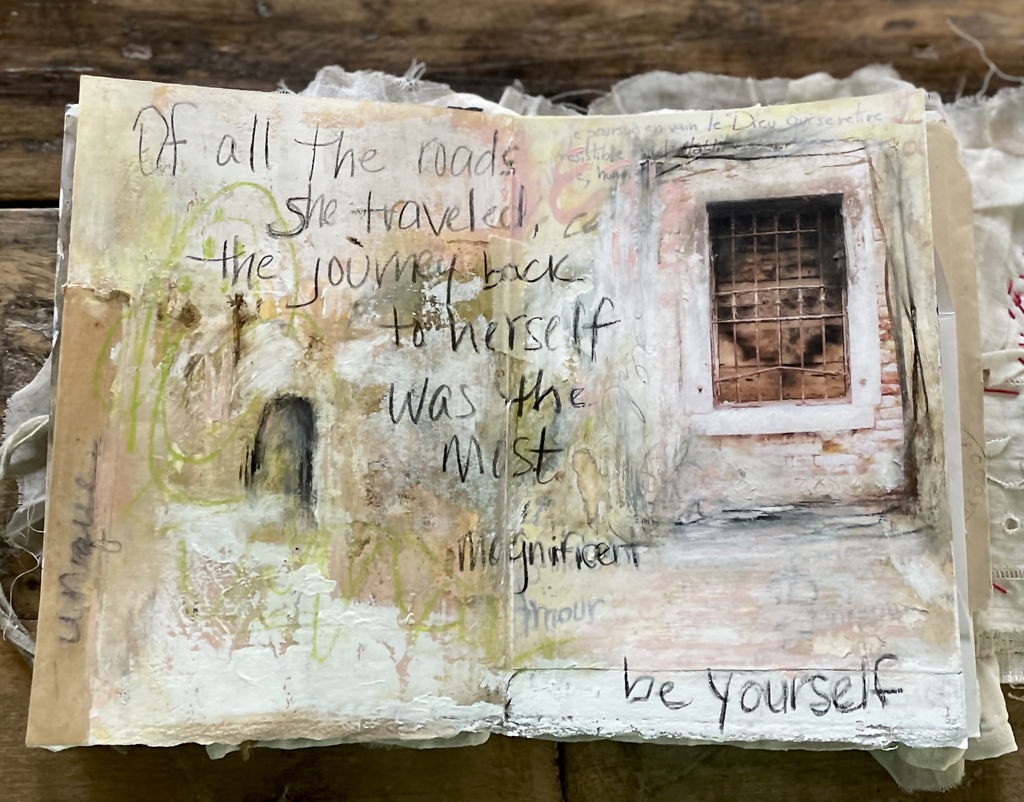 Of all the roads
she traveled,
the journey back
to herself
was the
most
magnificent
amour
be yourself
unique
je poursuis en vain le Dieu qui se retire